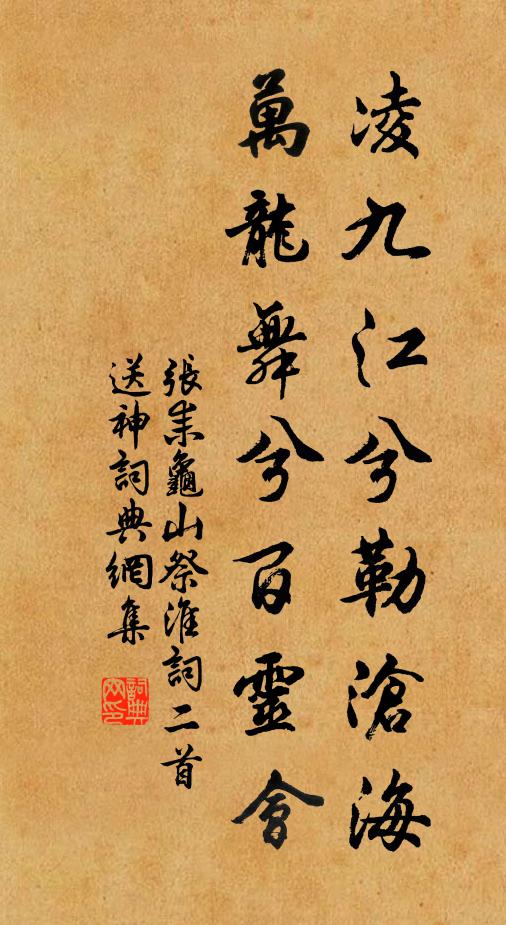 凌九江兮勒滄海
萬龍舞兮百靈會
張耒龜山祭淮詞二首
送神詞典網集
詞典網印